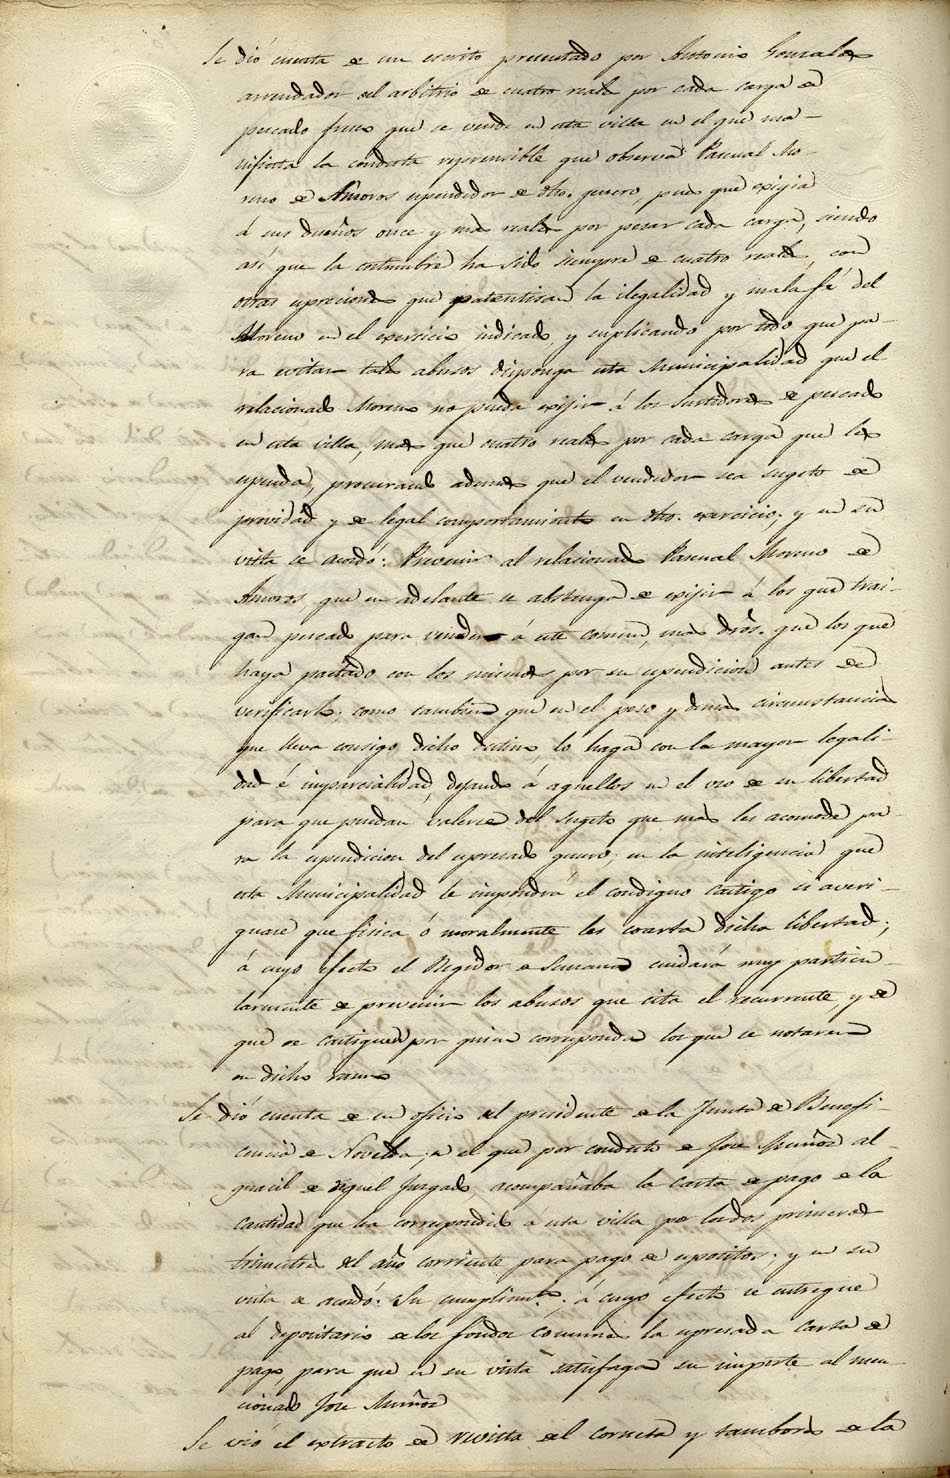 Se dió cuenta de un escrito presentado por Antonio Gonzales
arrendador del arbitrio de cuatro reales por cada carga de
pescado fresco que se vende en esta villa en el que ma-
nifiesta la conducta reprensible que observa Pascual Mo-
reno de Amoros espendedor de dho. genero, pues que exigia
á sus dueños once y mas reales por pesar cada carga, siendo
así que la costumbre ha sido siempre de cuatro reales, con
otras espreciones que patentisan la ilegalidad y mala fé del
Moreno en el exercicio indicado, y suplicando por todo que pa-
ra evitar tales abusos disponga esta Municipalidad que el
relacionado Moreno no pueda exijir á los surtidores de pescado
en esta villa, mas que cuatro reales por cada carga que les
espenda, procurando ademas que el vendedor sea sugeto de
providad y de legal comportamiento en dho. exercicio; y en su
vista se acordó: Prevenir al relacionado Pascual Moreno de
Amoros, que en adelante se abstenga de exijir á los que trai-
gan pescado para vender á este comun, mas dros. que los que
haya pactado con los mismos por su espendicion antes de
verificarlo; como tambien que en el peso y demas circunstancias
que lleva consigo dicho destino, lo haga con la mayor legali-
dad é imparcialidad, dejando á aquellos en el uso de su libertad
para que puedan valerse del sugeto que mas les acomode pa-
ra la espendicion del espresado genero; en la inteligencia que
esta Municipalidad le impondrá el condigno castigo si averi-
guase que fisica ó moralmente les coarta dicha libertad;
á cuyo efecto el Regidor de Semana cuidará muy particu-
larmente de prevenir los abusos que cita el recurrente, y de
que se castiguen por quien corresponda los que se notaren
en dicho ramo
Se dió cuenta de un oficio del presidente de la Junta de Benefi-
cencia de Novelda, en el que por conducto de Jose Muñoz al-
guacil de aquel Juzgado, acompañaba la carta de pago de la
cantidad que ha correspondido a esta villa por los dos primeros
trimestres del año corriente para pago de espositos; y en su
vista se acordó: Su cumplimto. á cuyo efecto se entregue
al depositario de los fondos comunes la espresada carta de
pago, para que en su vista satisfaga su importe al men-
cionado Jose Muñoz
Se vió el extracto de revista del corneta y tambores de la